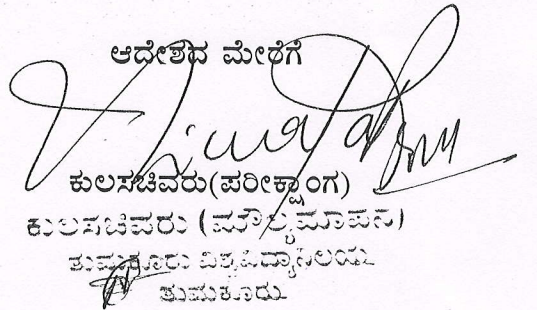 ಆದೇಶದ ಮೇರೆಗೆ
ಕುಲಸಚಿವರು(ಪರೀಕ್ಷಾಂಗ)
ಕುಲಸಚಿವರು (ಮೌಲ್ಯಮಾಪನ)
ತುಮಕೂರು ವಿಶ್ವವಿದ್ಯಾನಿಲಯ
ತುಮಕೂರು